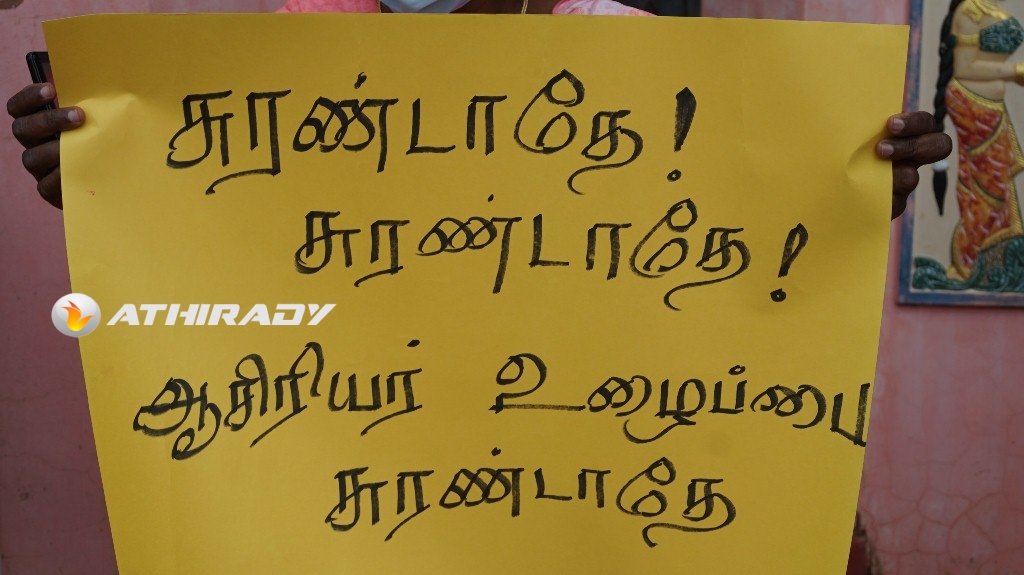 சுரண்டாதே!
சுரண்டாதே!
ATHIRADY
ஆசிரியர் உழைப்பை
சுரண்டாதே